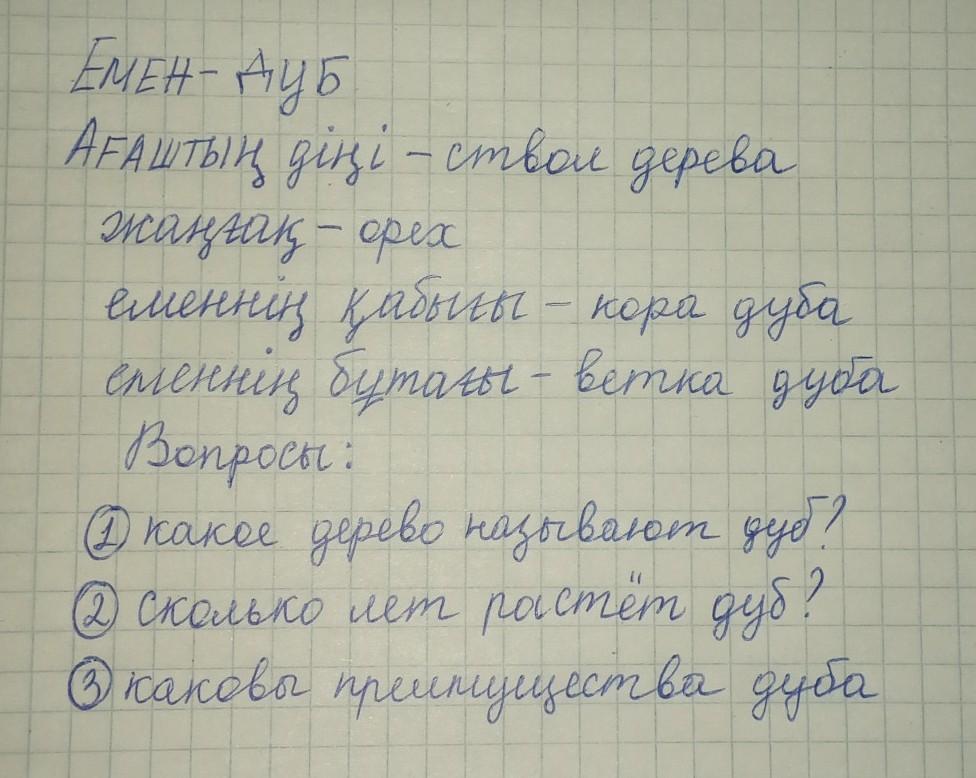 Емен - Дуб
Ағаштың діңі - ствол дерева
жаңғақ - орех
еменнің қабығы - кора дуба
еменнің бұтағы - ветка дуба
Вопросы:
① какое дерево называют дуб?
② сколько лет растёт дуб?
③ каковы преимущества дуба